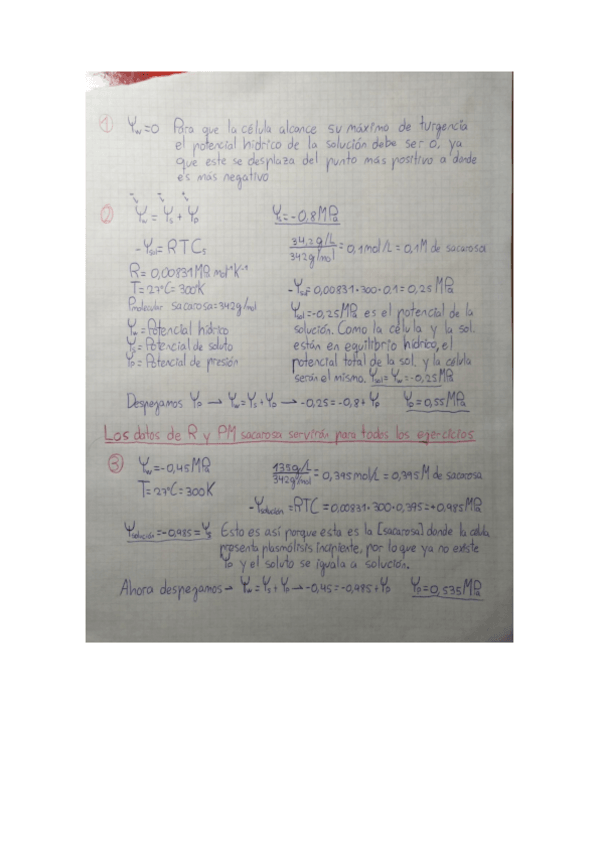 ① Ψw=0 Para que la célula alcance su máximo de turgencia
el potencial hídrico de la solución debe ser 0, ya
que este se desplaza del punto más positivo a donde
es más negativo
② Ψw = Ψs + Ψp
Ψs = -0,8 MPa
-Ψsol = RTCs
34,2 g/L / 342 g/mol = 0,1 mol/L = 0,1M de sacarosa
R = 0,00831 MPa mol⁻¹ K⁻¹
T = 27ºC = 300K
-Ψsol = 0,00831·300·0,1 = 0,25 MPa
Pmolecular sacarosa = 342 g/mol
Ψw = Potencial hídrico
Ψs = Potencial de soluto
Ψp = Potencial de presión
Ψsol = -0,25 MPa es el potencial de la
solución. Como la célula y la sol.
están en equilibrio hídrico, el
potencial total de la sol. y la célula
serán el mismo. Ψsol = Ψw = -0,25 MPa
Despegamos Ψp → Ψw = Ψs + Ψp → -0,25 = -0,8 + Ψp Ψp = 0,55 MPa
Los datos de R y PM sacarosa servirán para todos los ejercicios
③ Ψw = -0,45 MPa
T = 27ºC = 300K
135 g/L / 342 g/mol = 0,395 mol/L = 0,395 M de sacarosa
-Ψsolución = RTC = 0,00831·300·0,395 = +0,985 MPa
Ψsolución = -0,985 = Ψs Esto es así porque esta es la [sacarosa] donde la célula
presenta plasmólisis incipiente, por lo que ya no existe
Ψp y el soluto se iguala a solución.
Ahora despegamos → Ψw = Ψs + Ψp → -0,45 = -0,985 + Ψp Ψp = 0,535 MPa